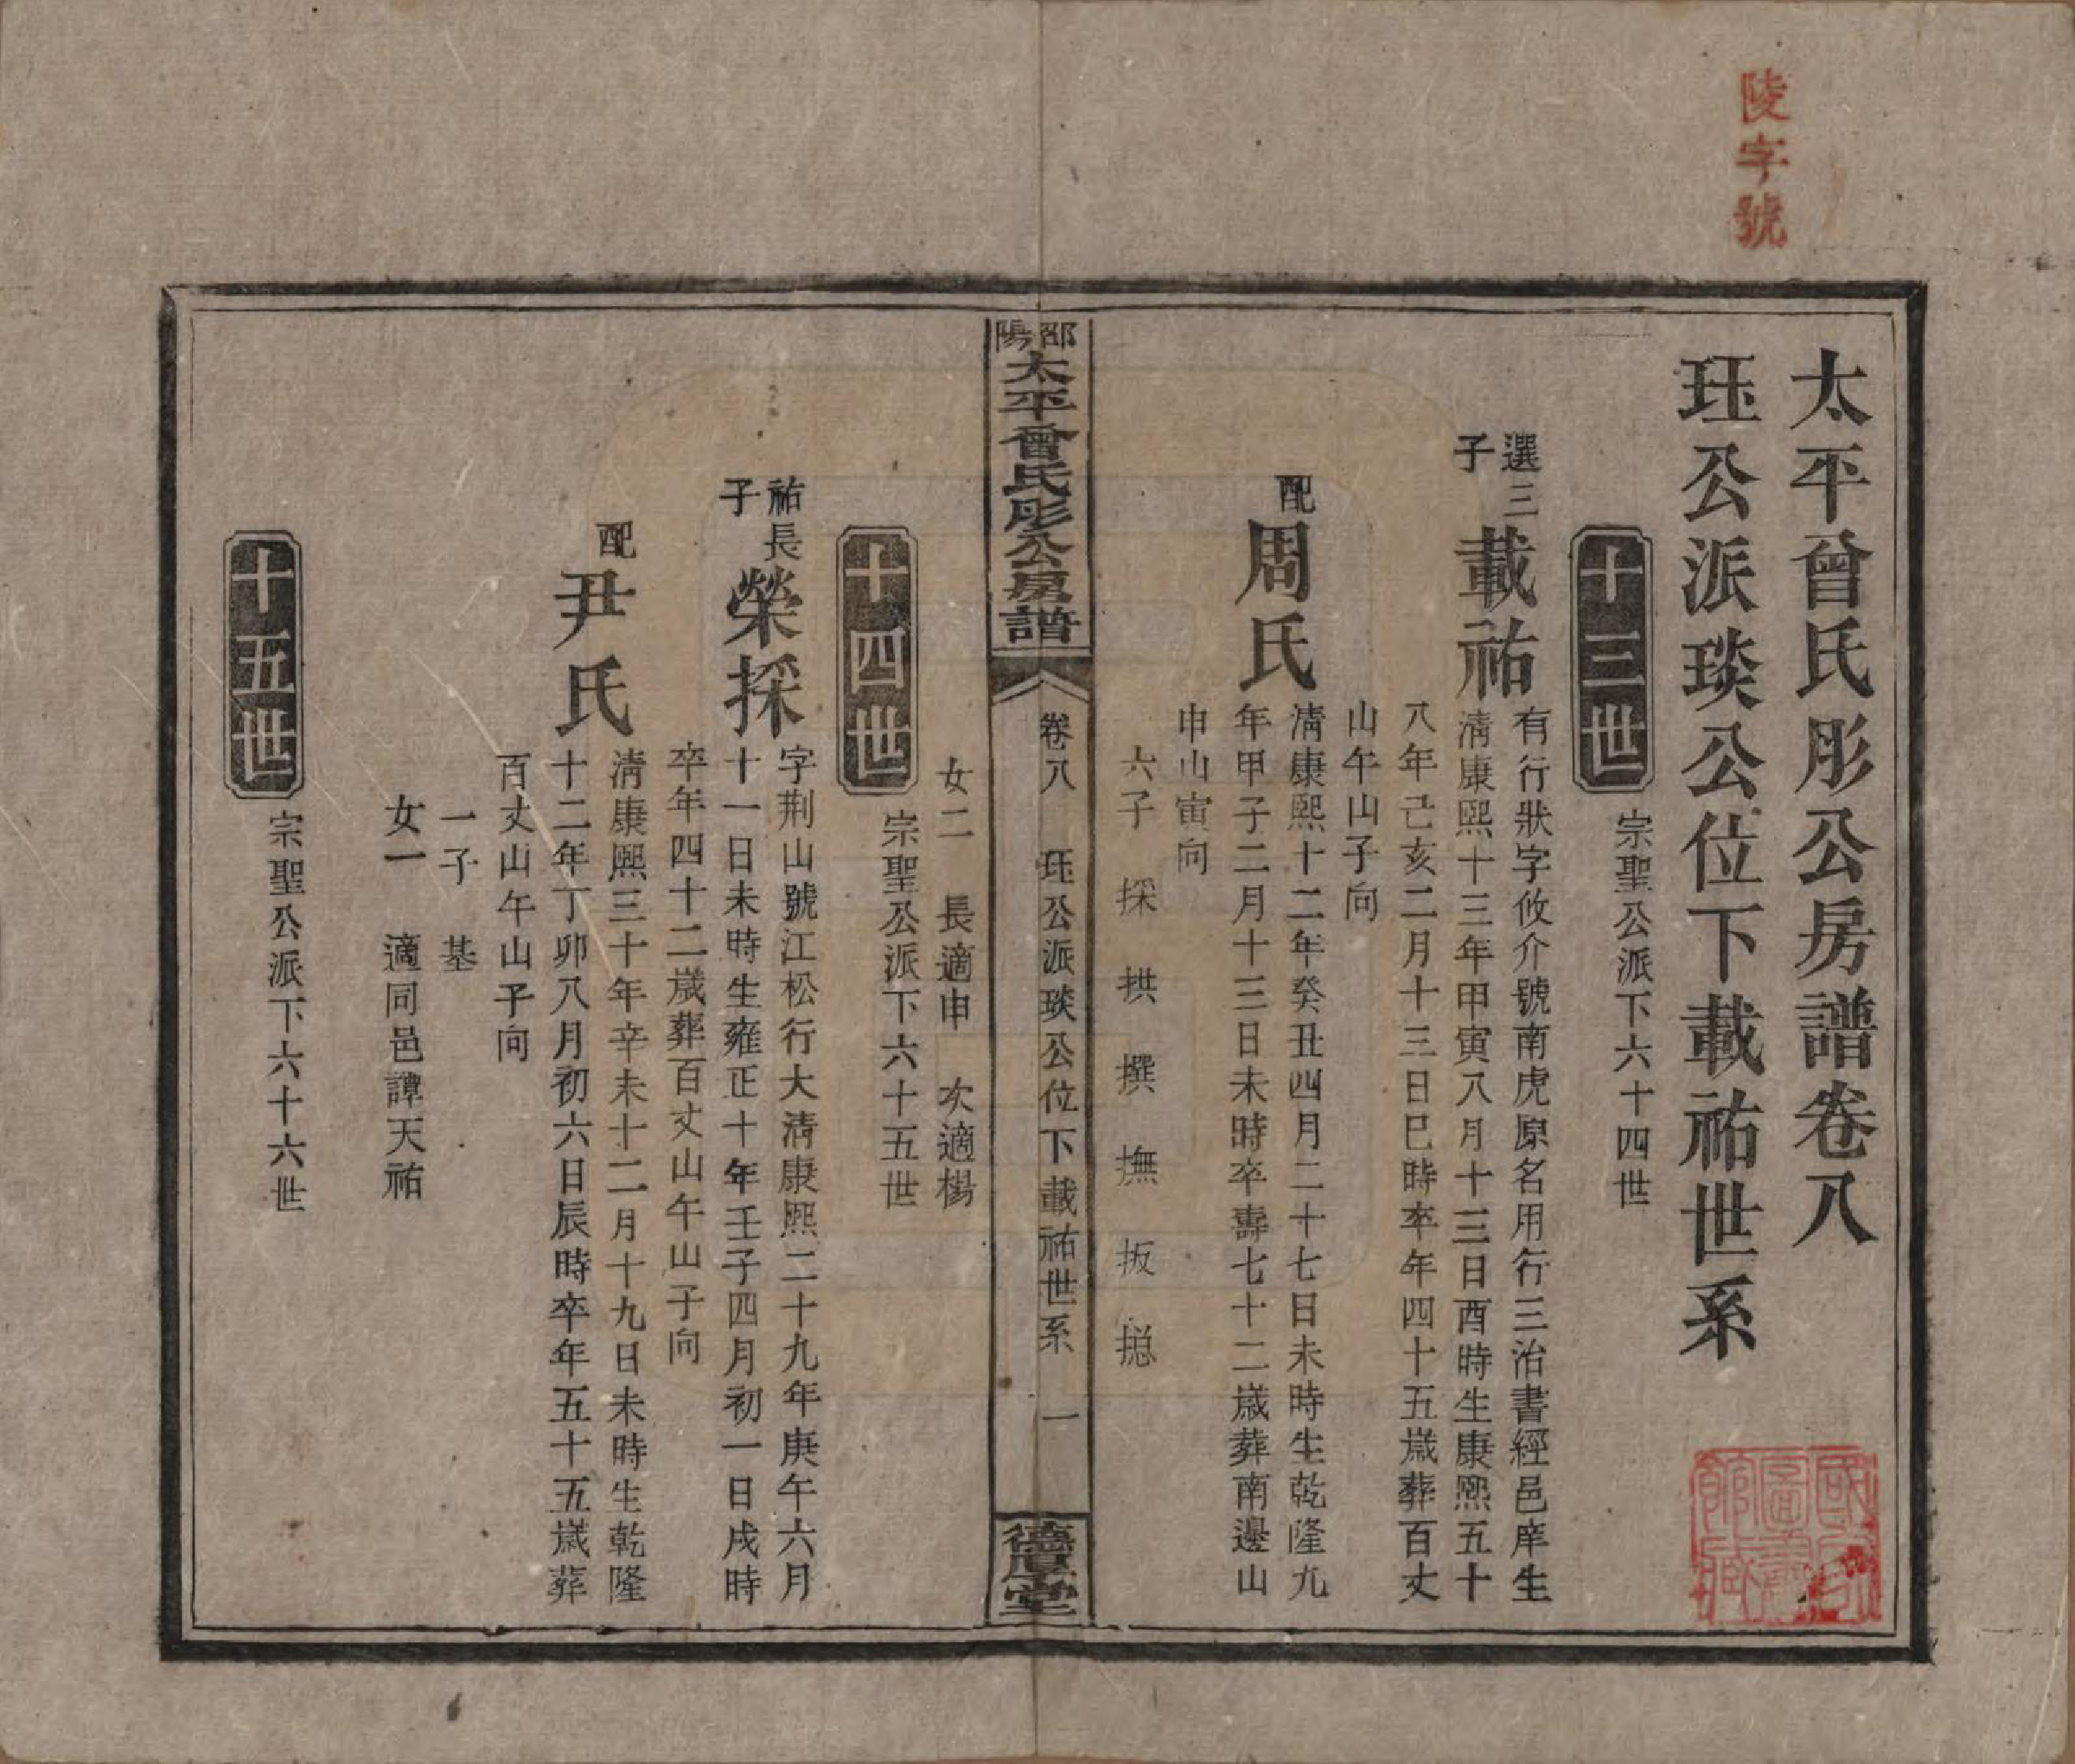 陵字號
太平曾氏彤公房譜卷八
珏公派琰公位下載祐世系
十三世
宗聖公派下六十四世
選三子
載祐
有行狀字攸介號南虎原名用行三治書經邑庠生
清康熙十三年甲寅八月十三日酉時生康熙五十
八年己亥二月十三日巳時卒年四十五歲葬百丈
山午山子向
配
周氏
清康熙十二年癸丑四月二十七日未時生乾隆九
年甲子二月十三日未時卒壽七十二歲葬南邊山
申山寅向
六子 採 拱 撰 撫 扳 摠
邵陽太平曾氏彤公房譜
卷八 珏公派琰公位下載祐世系 一
德厚堂
女二 長適申 次適楊
十四世
宗聖公派下六十五世
祐長子
榮採
字荆山號江松行大清康熙二十九年庚午六月
十一日未時生雍正十年壬子四月初一日戌時
卒年四十二歲葬百丈山午山子向
配
尹氏
清康熙三十年辛未十二月十九日未時生乾隆
十二年丁卯八月初六日辰時卒年五十五歲葬
百丈山午山子向
一子 基
女一 適同邑譚天祐
十五世
宗聖公派下六十六世